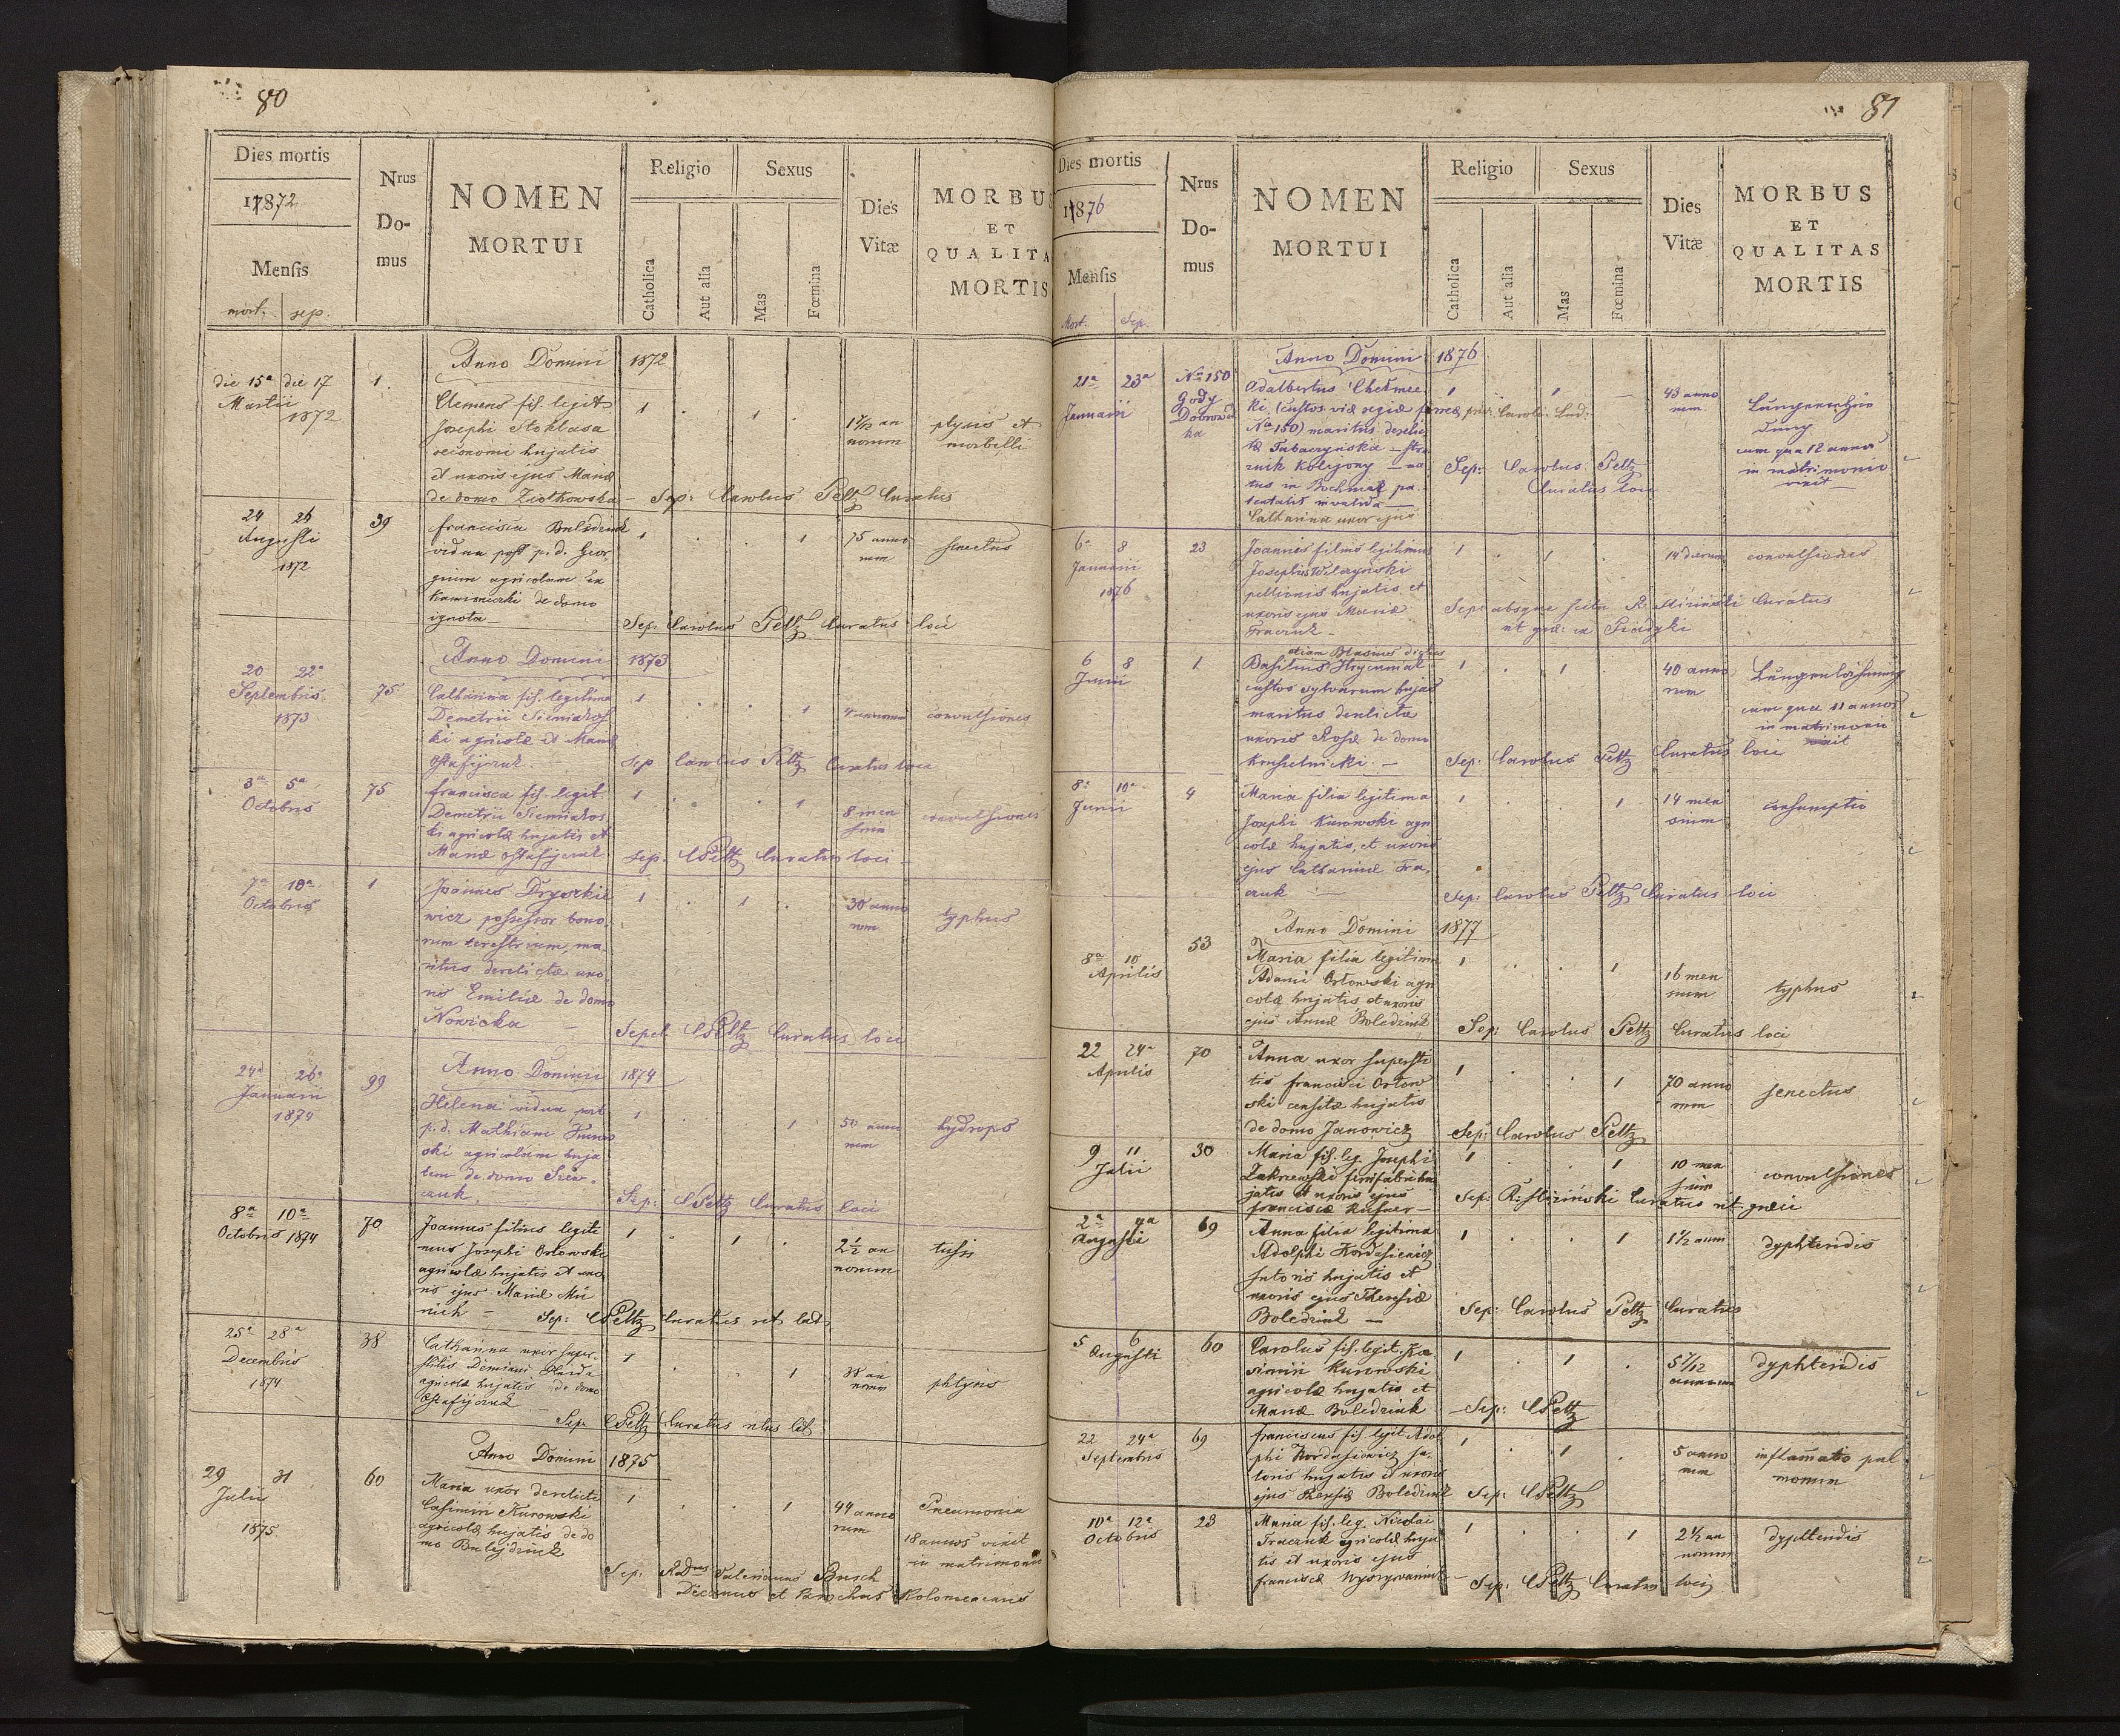 80
Dies mortis
1872
Mensis
mort. sep.
Nrus
Do-
mus
NOMEN
MORTUI
Religio
Catholica
Aut alia
Sexus
Mas
Fœmina
Dies
Vitæ
MORBUS
ET
QUALITA
MORTIS
Anno Domini 1872
die 15a die 17
Martii
1872
1.
Clemens fil. legit.
Josephi Stoklasa
oeconomi hujatis
et uxoris ejus Mariæ
de domo Ziółkowska
1 . 1 .
an
norum
et
morbilli
Sep: Carolus Peltz Curatus
24 26
Augusti
1872
39
Francisca
vidua post p. d. Geor-
gium agricolam ex
de domo
ignota
1 . . 1
75 anno
rum
senectus
Sep. Carolus Peltz Curatus loci
Anno Domini 1873
20 22a
Septembris
1873
75
Catharina fil. legitima
Demetrii
ki agricolæ et Mariæ
Ostafijczuk
1 . . 1
4 annorum
convulsiones
Sep Carolus Peltz Curatus loci
3a 5a
Octobris
75
Francisca fil. legit.
Demetrii
ki agricolæ hujatis et
Mariæ Ostafijczuk
1 . . 1
8 men
sium
convulsiones
Sep. CPeltz Curatus loci
7a 10a
Octobris
1
Joannes Dryszkie
wicz possessor bono-
rum terestrium, ma-
ritus derelictæ uxo-
ris Emiliæ de domo
Nowicka
1 . 1 .
30 anno
rum
typhus
Sepel. CPeltz Curatus loci
Anno Domini 1874
24a 26a
Januarii
1874
99
Helena vidua post
p. d. Mathiam
ski agricolam huja
tem de domo
czuk.
1 . . 1
50 anno
rum
hydrops
Sep: CPeltz Curatus loci
8a 10a
Octobris 1874
70
Joannes filius legiti
mus Josephi Orłowski
agricolæ hujatis et uxo
ris ejus Mariæ Mü
nich
1 . 1 .
2½ an
norum
tusis
Sep: CPeltz Curatus rit. lat.
25a 28a
Decembris
1874
38
Catharina uxor super-
stitis Demiani
agricolæ hujatis de domo
Ostafijczuk
1 . . 1
38 an
norum
phtysis
Sep. CPeltz Curatus ritus lat
Anno Domini 1875
29 31
Julii
1875
60
Maria uxor derelicti
Casimiri Kurowski
agricolæ hujatis de do
mo Bulejdziuk
1 . . 1
44 anno
rum
Pneumonia
18 annos vixit
in matrimonio
Sep: Rdmus Valerianus Busch
Decanus et Parochus Kolomeaensis
81
Dies mortis
1876
Mensis
Mort. Sep.
Nrus
Do-
mus
NOMEN
MORTUI
Religio
Catholica
Aut alia
Sexus
Mas
Fœmina
Dies
Vitæ
MORBUS
ET
QUALITAS
MORTIS
Anno Domini 1876
21a 23a
Januarii
No 150
Gody
Dobrowód
ka
Adalbertus Chełmec
ki (custos viæ regiæ ferreæ priv. Caroli Lud:
No 150) maritus derelic
tæ Tabaczyńska – stra
znik kolejowy – na
tus in Bochniæ pa-
tentalis invalida
Catharina uxor ejus
1 . 1 –
43 anno
rum
Lungenentzün
dung
cum qua 12 annos
in matrimonio
vixit
Sep: Carolus Peltz
Curatus loci
6a 8
Januarii
1876
23
Joannes filius legitimus
Josephi Wilczyński
pellionis hujatis et
uxoris ejus Mariæ
Traczuk
1 . 1 .
14 dierum
convulsiones
Sep: absque scitu R. Curatus
rit. græ: ex
6 8
Junii
1
etiam Blasius dictus
Basilius Hrycuniak
custos sylvarum hujas
maritus derelictæ
uxoris Rosæ de domo
1 . 1 .
40 anno
rum
Lungenlähmung
cum qua 11 annos
in matrimonio
vixit
Sep: Carolus Peltz Curatus loci
8a 10a
Junii
4
Maria filia legitima
Josephi Kurowski agri
colæ hujatis, et uxoris
ejus Catharinæ Tra-
czuk
1 . . 1
14 men
sium
consumptio
Sep: Carolus Peltz Curatus loci
Anno Domini 1877
8a 10
Aprilis
53
Maria filia legitima
Adami Orłowski agri
colæ hujatis et uxoris
ejus Annæ Boledziuk
1 . . 1
16 men
sium
typhus
Sep: Carolus Peltz Curatus loci
22 24a
Aprilis
70
Anna uxor supersti
tis Francisci Orłow
ski censitæ hujatis
de domo Janowicz
1 . . 1
70 anno
rum
senectus
Sep: Carolus Peltz
9 11
Julii
30
Maria fil. leg. Josephi
Zakrzewski ferrifabri hu
jatis et uxoris ejus
Franciscæ Kusner
1 . . 1
10 men
sium
convulsiones
Sep: R: Curatus rit. græci
2a 4a
Augusti
69
Anna filia legitima
Adolphi Kordasiewicz
sutoris hujatis et
uxoris ejus Theresiæ
Boledziuk
1 . . 1
1½ anni
dyphteridis
Sep: Carolus Peltz Curatus
5 6
Augusti
60
Carolus fil. legit. Ca
simiri Kurowski
agricolæ hujatis et
Mariæ Boledziuk
1 . 1 .
5 7/12
annorum
dyphteridis
Sep: CPeltz
22 24a
Septembris
69
Franciscus fil. legit. Adol
phi Kordasiewicz su-
toris hujatis et uxoris
ejus Theresiæ Boledziuk
1 . 1 .
5 anno
rum
inflammatio pul
monum
Sep: CPeltz
10a 12a
Octobris
23
Maria fil. leg. Nicolai
Traczuk agricolæ huja
tis et uxoris ejus
Franciscæ
1 . . 1
2½ an
norum
dyphteridis
Sep: CPeltz Curatus loci